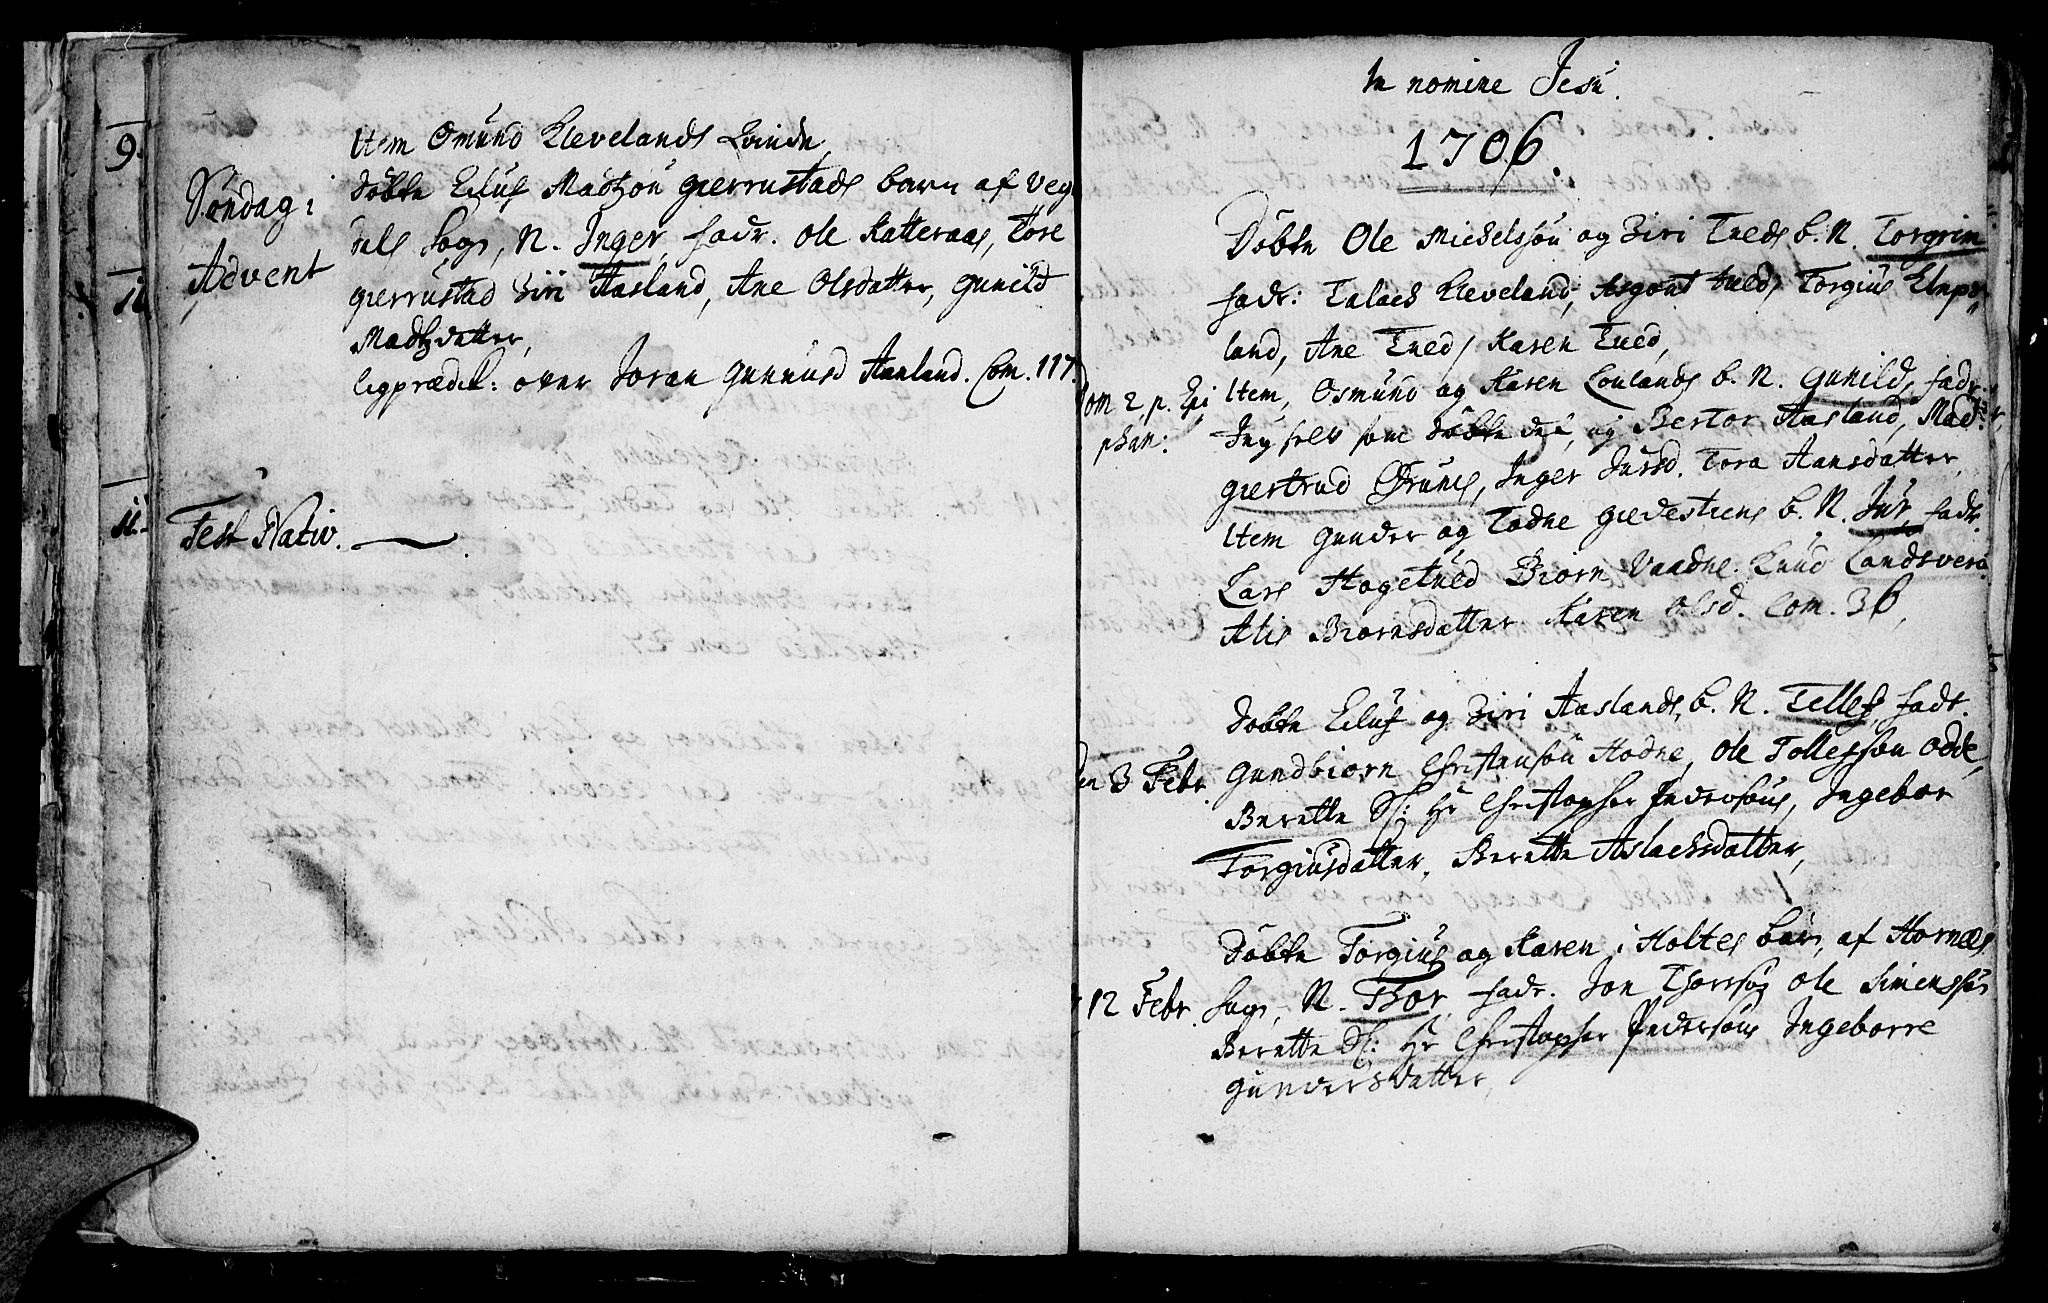 9.
11
11.
Søndag i
Advent
Item Omund Klevelands Qvinde
Døbte Eiluf Madtzøn gierrustads barn af Veg
Sogn, N. Inger, fadr. Ole Katteraas, Tore
gierrustad Siri Aasland, Ane Olsdatter, gunild
Madtzdatter,
ligprædik: over Joran gunnusd Aanland. Com. 117.
Fest Nativ.
In nomine Jesu.
1706.
Døbte Ole Michelssøn og Siri Tveds b. N. Torgrim
fadr: Talach Kleveland, Asgout tved, Torgius Klepp
land, Ane Tved, Karen Tved,
Dom 2. p. Epi
phan:
Item, Osmund og Karen Lonlands b. N. gunild, fadr.
Jeg selv som døbte det, og Bertor Aasland, Mad:
giertrud Bruns, Inger Jussd. Tora Aansdatter,
Item gunder og Todne giedestiens b. N. Jur, fadr.
Lars Hagetved Biørn Vaadne. Knud Landsverd
Alis Biørnsdatter Karen Olsd. Com. 36,
den 3 Febr.
Døbte Eiluf og Siri Aaslands, b. N. Tellef, fadr.
gundbiørn Christensøn Hodne, Ole Tollefssøn Odde,
Berette Sl: Hr Christopher Pedersøns, Ingebor
Torgiusdatter, Berette Aslachsdatter,
12 Febr.
Døbte Torgius og Karen i Holtes barn, af Hornæs
Sogn, N. Thor, fadr. Jon Thorsøn Ole Simenssøn
Berette Sl: Hr Christopher Pedersøns, Ingeborre
gundersdatter,